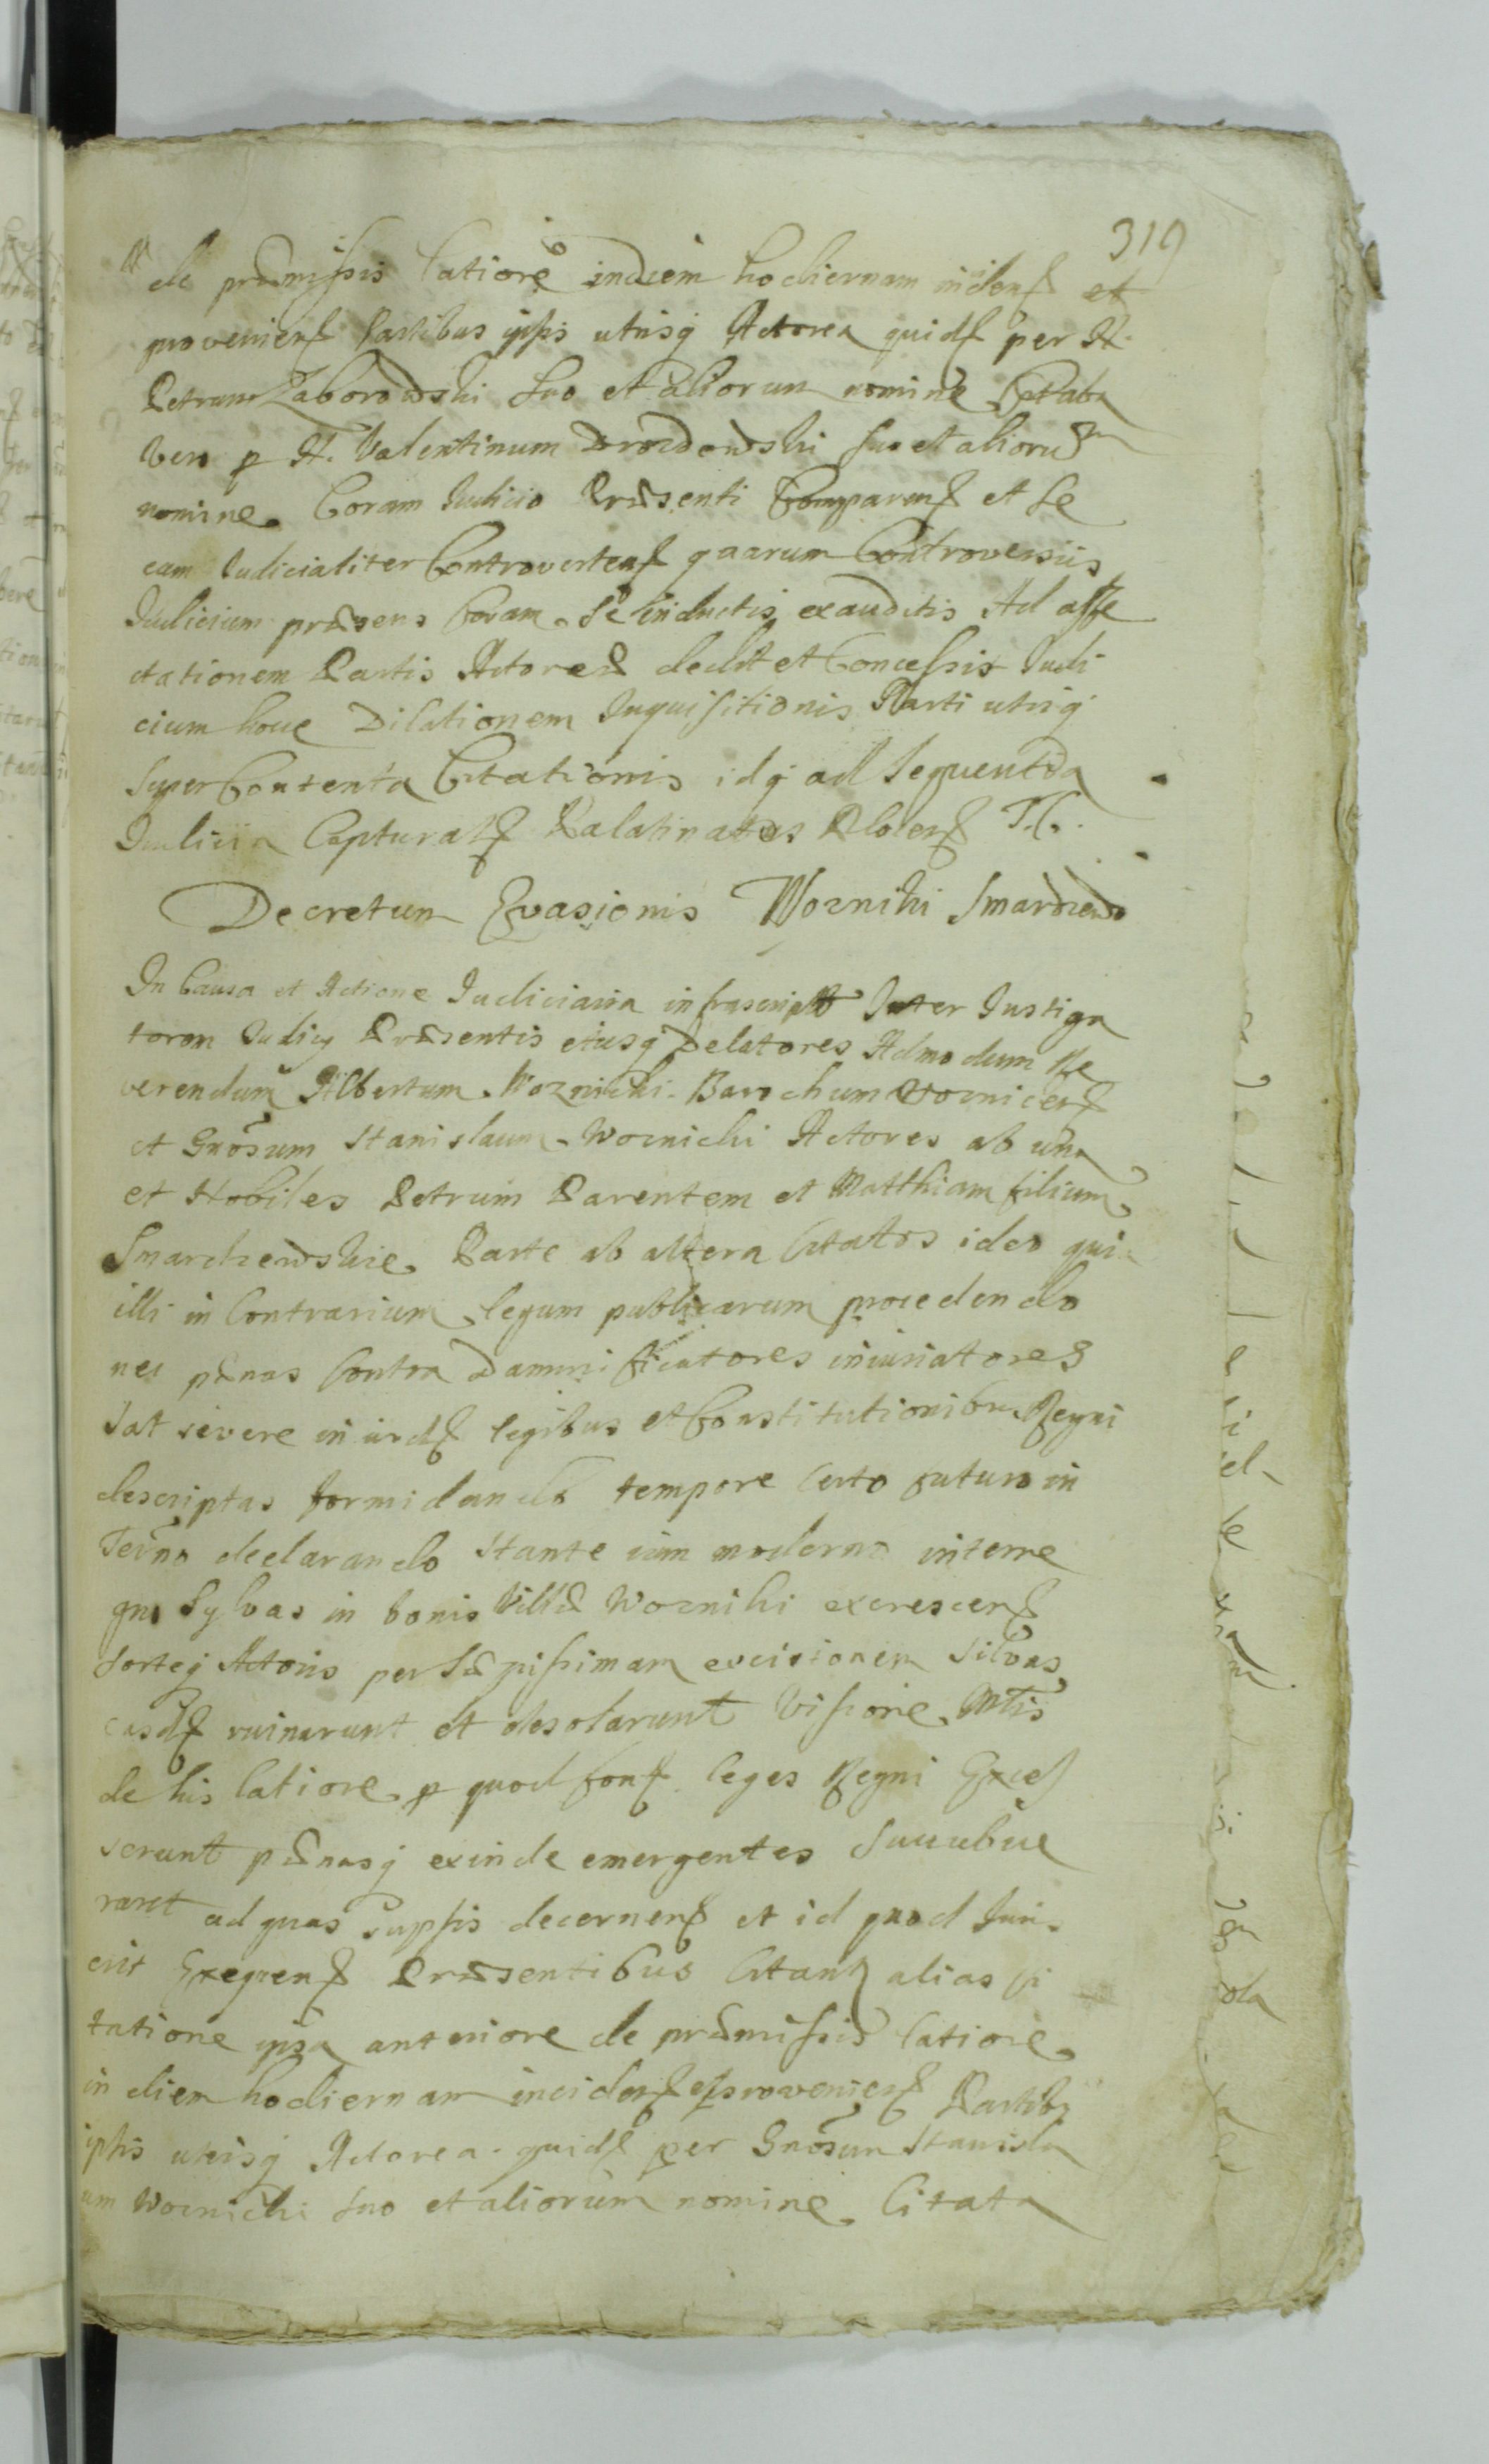 319
de præmissis latiore in diem hodiernam inciden et
provenien Partibus ipsis utrisq Actorea quid per N.
Petrum Zaborowski suo et aliorum nomine Citata
vero p N. Valentinum Drozdowski suo et alioru
nomine Coram Iudicio Præsenti Comparen et se
eam Iudicialiter Controverten quarum Controversiis
Iudicium præsens Coram se inductis exauditis Ad affe
ctationem Partis Actoreæ dedit et Concessit Iudi
cium hoce Dilationem Inquisitionis Parti utriq
super Contenta Citationis idq ad sequentia
Iudicia Captural Palatinatus Plocen
Decretum Evasionis Wozniki Smardzewo
In Causa et Actione Iudiciaria infrascripta Inter Instiga
torem Iudicy Præsentis eiusq Delatores Admodum Re
verendum Albertum Woznicki Parochum Woznicen
et Gnosum Stanislaum Woznicki Actores ab una
et Nobiles Petrum Parentem et Matthiam filium
Smardzewskie Parte ab altera Citatos ideo quia
illi in Contrarium legum publicarum procedendo
nec pænas Contra Damnificatores iniuriatores
sat severe in iurd legibus et Constitutionibus Regni
descriptas formidando tempore Certo futuro in
Termno declarando stante iam moderno interre
gno Sylvas in bonis Villæ Woznihi excrescen
sorteq Actoris per sæpissimam excisionem silvas
easd ruinarunt et desolarunt Visione
de his latiore p quod Con leges Regni Exces
serunt pænasq exinde emergentes succubue
runt ad quas decernen et id quod Iuri
erit Exequen Præsentibus Citan alias Ci
tatione ipsa anteriore de præmissis latiore
in diem hodiernam inciden et provenien Partibs
ipsis utrisq Actorea quid per Gnosum Stanisla
um Woznicki suo et aliorum nomine Citata